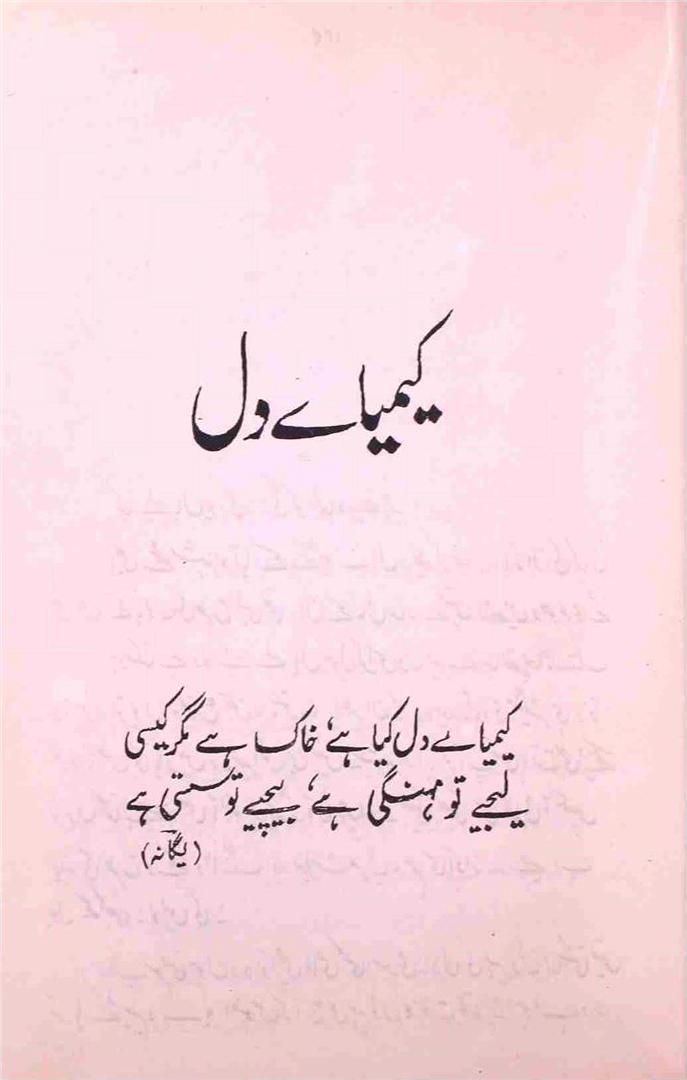 کیمیاے دل
کیمیاے دل کیا ہے، خاک ہے مگر کیسی
لیجیے تو مہنگی ہے، بیچیے تو سستی ہے
(یگانہ)